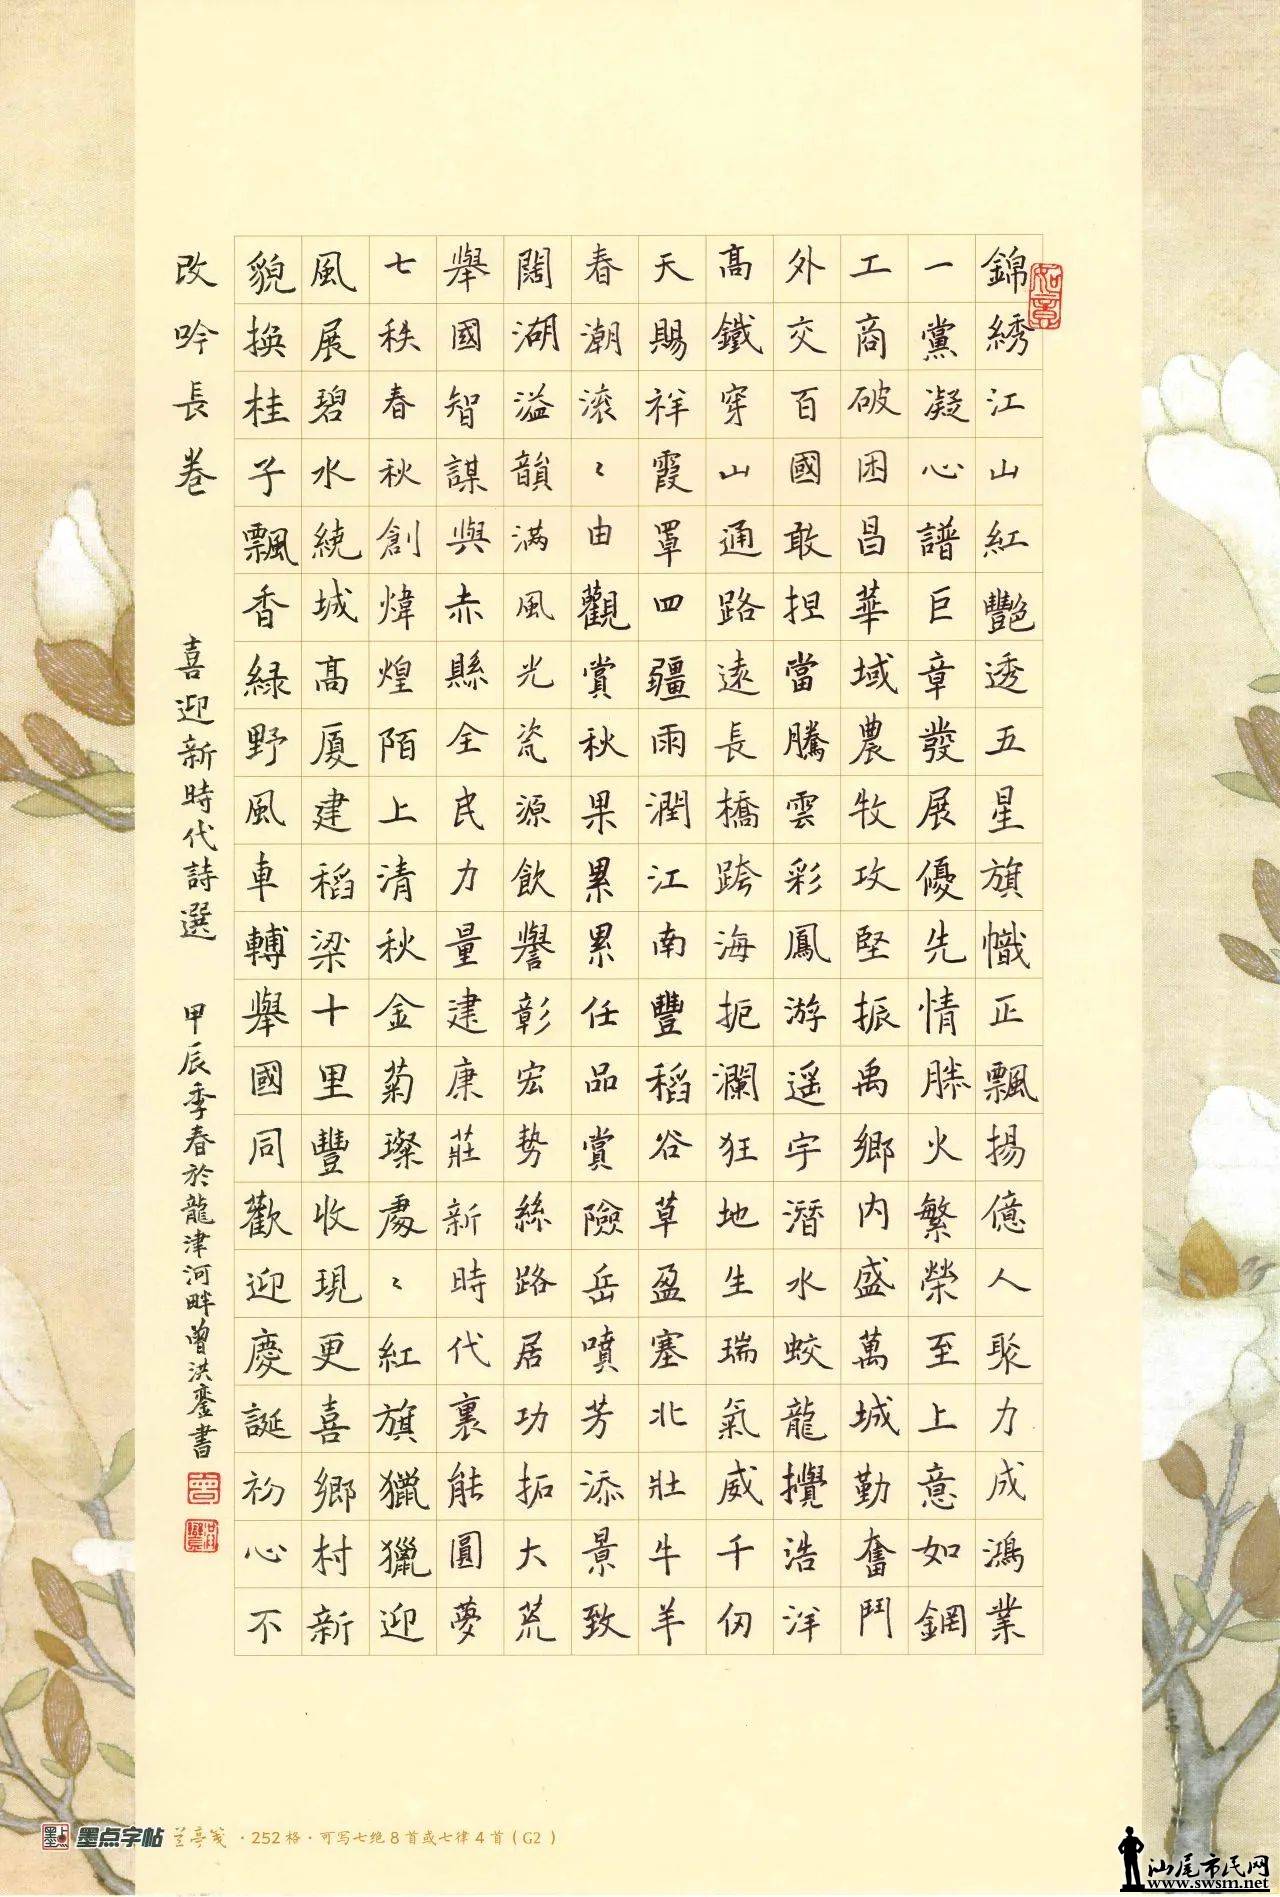 如意
錦綉江山紅艷透五星旗幟正飄揚億人聚力成鴻業
一黨凝心譜巨章發展優先情勝火繁榮至上意如鋼
工商破困昌華域農牧攻堅振禹鄉内盛萬城勤奮鬥
外交百國敢担當騰雲彩鳳游遥宇潛水蛟龍攪浩洋
高鐵穿山通路遠長橋跨海扼瀾狂地生瑞氣威千仞
天賜祥霞罩四疆雨潤江南豐稻谷草盈塞北壯牛羊
春潮滾〻由觀賞秋果累累任品賞險岳噴芳添景致
闊湖溢韻滿風光瓷源飲譽彰宏勢絲路居功拓大荒
舉國智謀興赤縣全民力量建康莊新時代裏能圓夢
七秩春秋創煒煌陌上清秋金菊璨處〻紅旗獵獵迎
風展碧水繞城高厦建稻粱十里豐收現更喜鄉村新
貌換桂子飄香緑野風車轉舉國同歡迎慶誕初心不
改吟長卷 喜迎新時代詩選 甲辰季春於龍津河畔曾洪鑾書
墨点字帖 兰亭笺·252格·可写七绝8首或七律4首（G2）
汕尾市民网
www.swsm.net